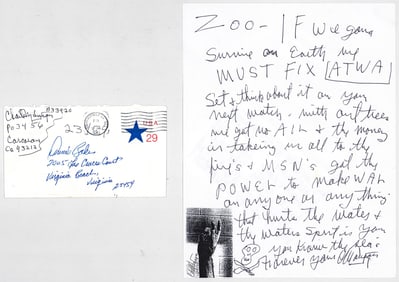 B33920
PO 3456
Corcoran
Ca 93212
USA
29
Virginia Beach,
Virginia
ZOO - IF we gona
Survive on Earth we
MUST FIX ATWA
Set & think about it on your
next watch. with out trees
we got no AIR & the money
is takeing us all to the
& MSN's got the
POWER to make WAR
on anyone or anything
that hurts the water &
the waters Spirit is you
you know the
Forever your